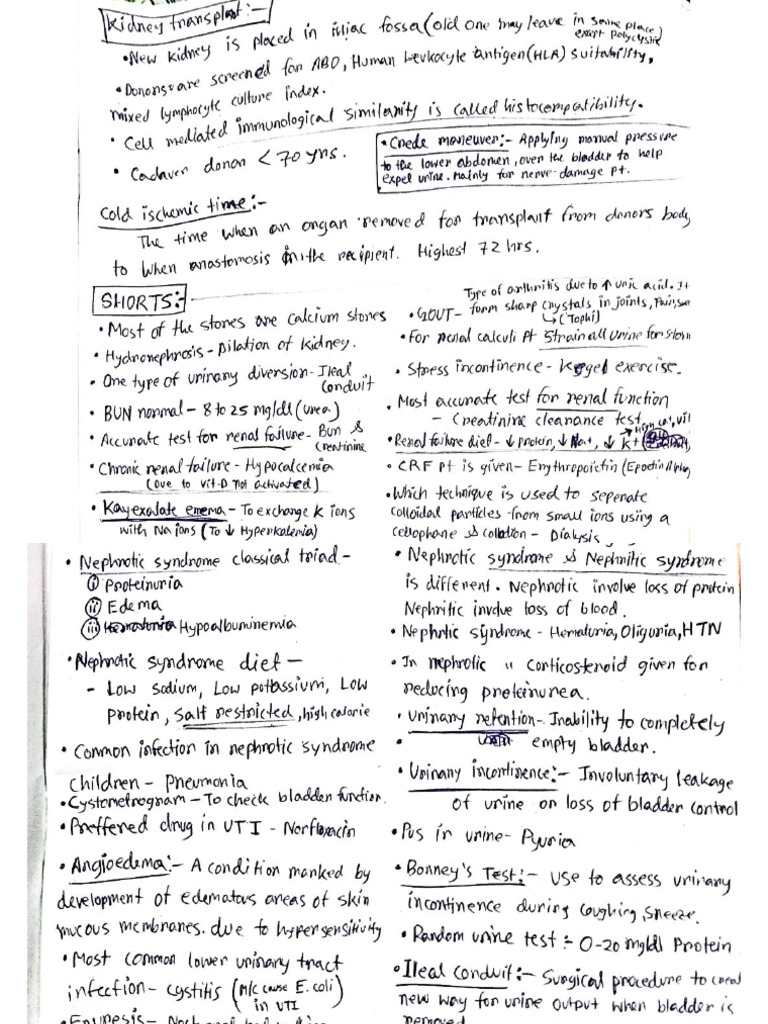 Kidney transplant:-
• New kidney is placed in iliac fossa (old one may leave in same place
except polycystic)
• Donors are screened for ABO, Human Leukocyte Antigen (HLA) Suitability,
mixed lymphocyte culture index.
• Cell mediated immunological similarity is called histocompatibility.
• Cadaver donor < 70 yrs.
• Crede maneuver:- Applying manual pressure
to the lower abdomen, over the bladder to help
expel urine. Mainly for nerve damage pt.
Cold ischemic time:-
The time when an organ removed for transplant from donors body
to when anastomosis in the recipient. Highest 72 hrs.
SHORTS:-
• Most of the stones are calcium stones
• Hydronephrosis - Dilation of kidney.
• One type of urinary diversion - Ileal
conduit
• BUN normal - 8 to 25 mg/dl (urea)
• Accurate test for renal failure - Bun &
Creatinine
• Chronic renal failure - Hypocalcemia
(Due to vit-D not activated)
• Kayexalate enema - To exchange K ions
with Na ions (To ↓ Hyperkalemia)
Type of arthritis due to ↑ uric acid. It
• GOUT - form sharp crystals in joints,
↳ (Tophi)
• For renal calculi Pt strain all urine for stone
• Stress incontinence - Kegel exercise.
• Most accurate test for renal function
- Creatinine clearance test
• Renal failure diet - ↓ protein, ↓ Na+, ↓ K+ → High cal, vit
• CRF pt is given - Erythropoietin (Epoetin Alpha)
• Which technique is used to seperate
colloidal particles from small ions using a
cellophane & collation - Dialysis
• Nephrotic syndrome classical triad -
(i) Proteinuria
(ii) Edema
(iii) Hematuria Hypoalbuminemia
• Nephrotic syndrome diet -
- Low sodium, Low pottassium, Low
Protein, salt restricted, high calorie
• Common infection in nephrotic syndrome
children - Pneumonia
• Cystometrogram - To check bladder function.
• Preffered drug in UTI - Norfloxacin
• Angioedema:- A condition marked by
development of edematous areas of skin
mucous membranes. due to hypersensitivity
• Most common lower urinary tract
infection - cystitis (M/c cause E. coli)
in UTI
• Enuresis -
• Nephrotic syndrome & Nephritic syndrome
is different. Nephrotic involve loss of protein
Nephritic involve loss of blood.
• Nephritic syndrome - Hematuria, Oliguria, HTN
• In nephrotic " corticosteroid given for
reducing proteinurea.
• Urinary retention - Inability to completely
• empty bladder.
• Urinary incontinence:- Involuntary leakage
of urine or loss of bladder control
• Pus in urine - Pyuria
• Bonney's Test:- Use to assess urinary
incontinence during coughing, sneeze.
• Random urine test :- 0-20 mg/dl Protein
• Ileal conduit:- Surgical procedure to
new way for urine output when bladder is
removed